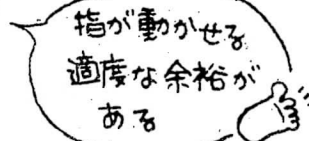 指が動かせる
適度な余裕が
ある